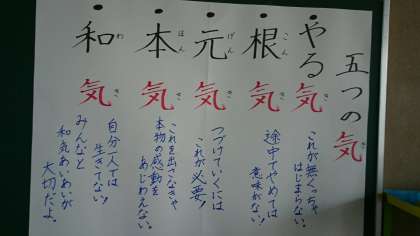 五つの気
やる気
これが無くっちゃ
はじまらない。
根気
途中でやめては
意味がない。
元気
つづけていくには
これが必要!
本気
これを出さなきゃ
本物の感動を
あじわえない。
和気
自分一人では
生きてない!
みんなと
和気あいあいが
大切だよ。